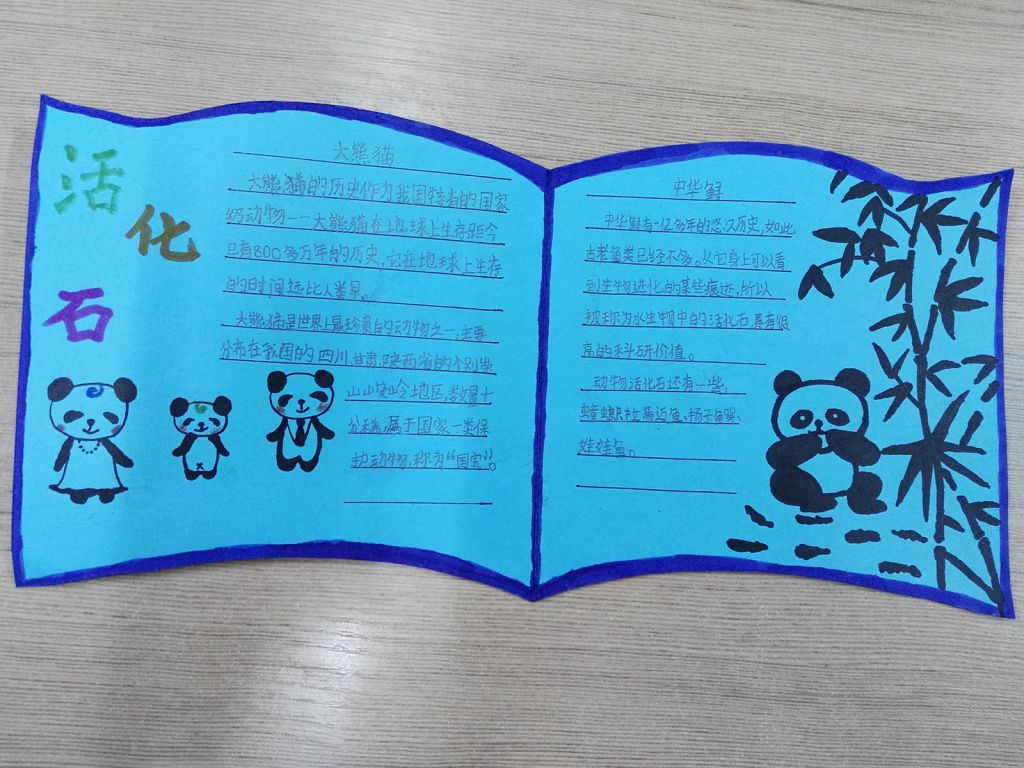 活
化
石
大熊猫
大熊猫的历史作为我国特有的国家
级动物一一大熊猫在地球上生存距今
已有800多万年的历史,它在地球上生存
的时间远比人类早。
大熊猫是世界上最珍贵的动物之一,主要
分布在我国的四川,甘肃,陕西省的个别崇
山山峻岭地区,数量十
分稀,属于国家一类保
护动物,称为“国宝”。
中华鲟
中华鲟有一亿多年的悠汉历史,如此
古老鱼类已经不多。从它身上可以看
到生物进化的某些痕迹,所以
被称为水生物中的活化石,具有很
高的科研价值。
动物活化石还有一些,
蟑螂,拉蒂迈鱼、扬子鱼鳄、
娃娃鱼。